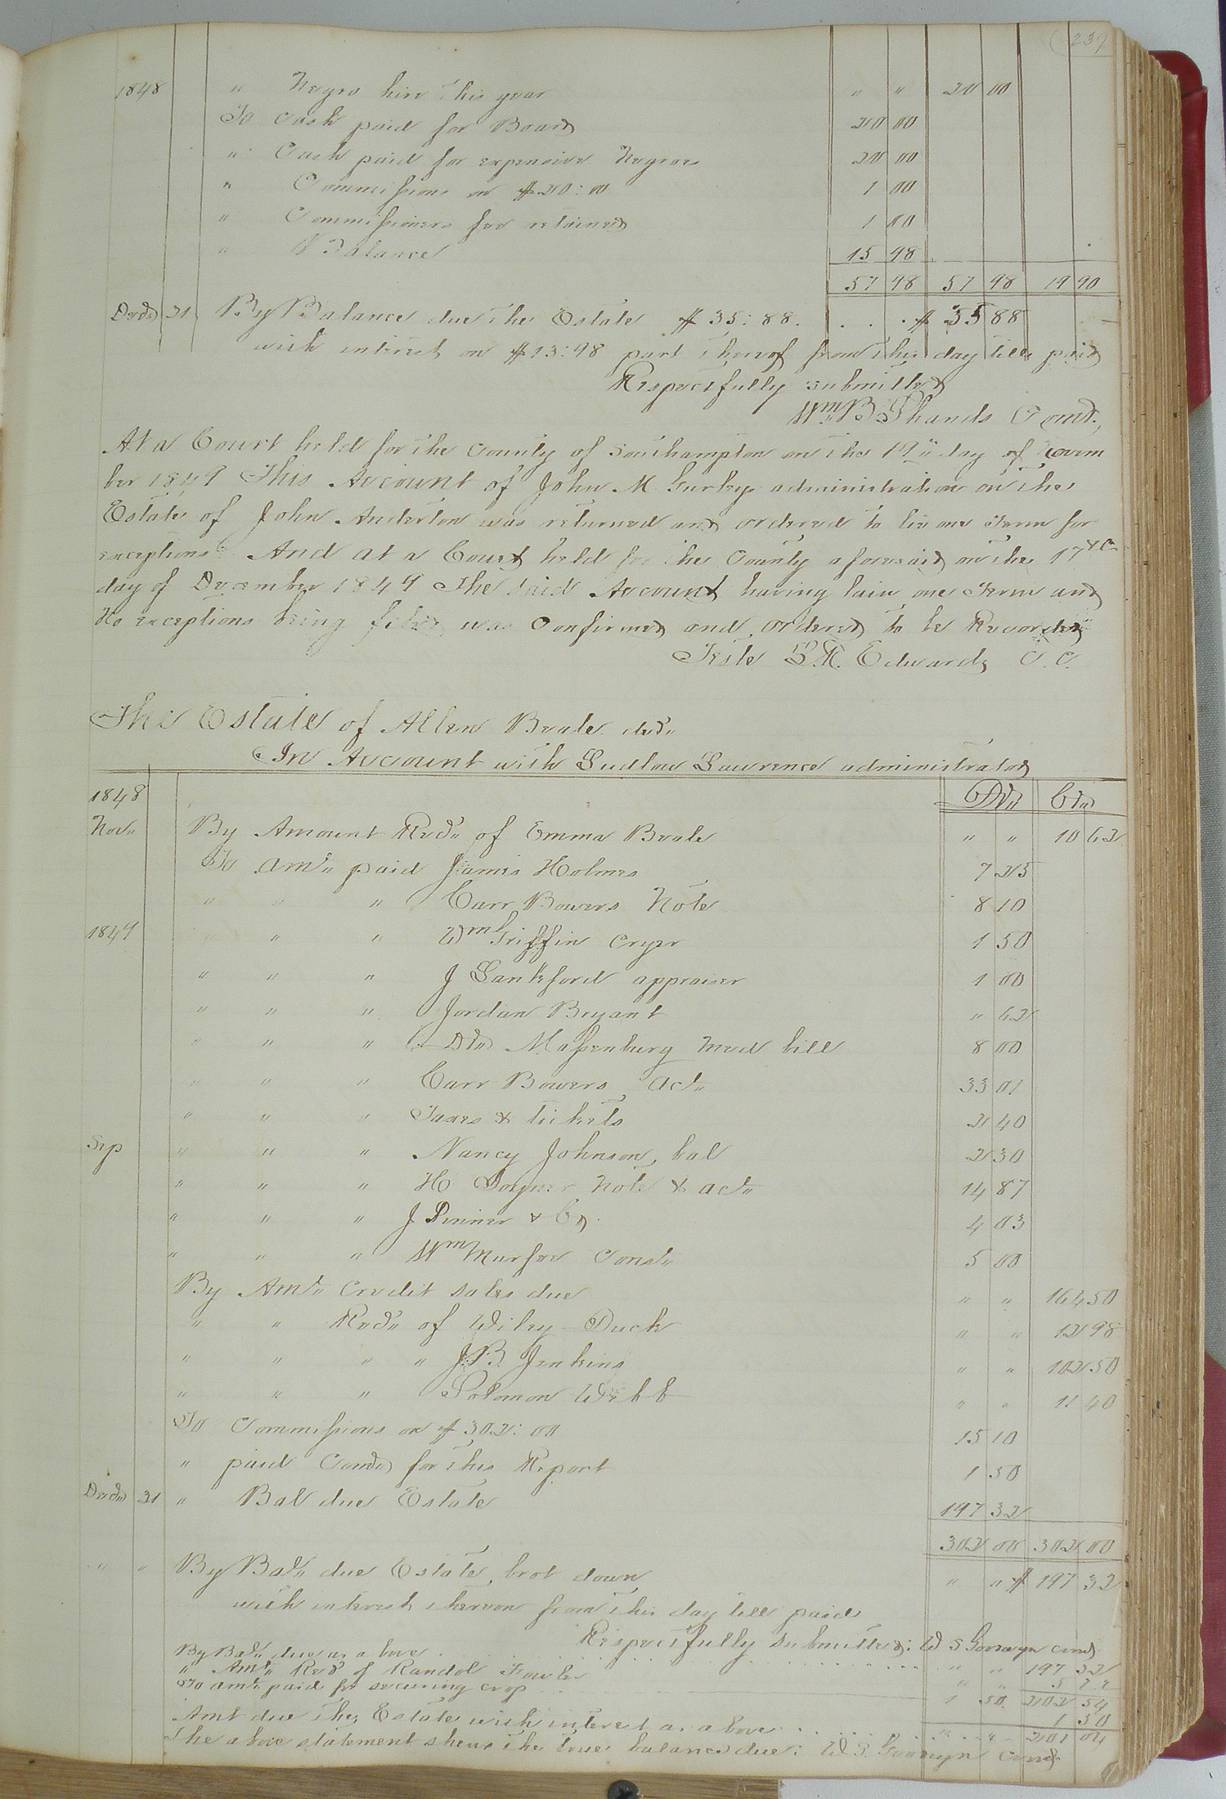 239
1848 " Negro hire this year " " 20 00
To Cash paid for Board 20 00
" Cash paid for expensive Negroes 20 00
" Commissions on $20:00 1 00
" Commissioners fee retained 1 00
" Balance 15 98
57 98 57 98 19 90
Decr 31 By Balance due the Estate $35:88. . . . $ 35 88
with interest on $13:98 part thereof from this day till paid
Respectfully submitted
Wm B Shands Comr.
At a Court held for the County of Southampton on the 19th day of Novem
ber 1849 This Account of John M Gurley administration on the
Estate of John Anderton was returned and ordered to lie one Term for
exceptions And at a Court held for the County aforesaid on the 17th
day of December 1849 The said Account having lain one Term and
No exceptions being filed was Confirmed and ordered to be Recorded
Teste L R. Edwards C. C.
The Estate of Allen Beale decd
In Account with Ludlow Lawrence administrator
1848 Dr Cr
Novr By Amount Recd of Emma Beale " " 10 62
To amt paid James Holmes 7 25
" " " Carr Bowers Note 8 10
1849 " " Wm Griffin cryer 1 50
" " " J Lankford appraiser 1 00
" " " Jordan Bryant " 62
" " " Dr Massenburg med bill 8 00
" " " Carr Bowers act 33 01
" " " Taxes & tickets 2 40
Sep " " " Nancy Johnson, bal 2 30
" " " H Joyner Note & act 14 87
" " " J Pinner & Co. 4 03
" " " Wm Murfee Const 5 00
By Amt Credit sales due " " 164 50
" " Recd of Wiley Duck " " 12 98
" " " " J.B. Jenkins " " 102 50
" " " Solomon Webb " " 11 40
To Commissions on $302:00 15 10
" paid Comr for this Report 1 50
Decr 31 " Bal due Estate 197 32
302 00 302 00
" " By Bal due Estate, brot down " " $ 197 32
with interest thereon from this day till paid
Respectfully submitted: W S Goodwyn comr
By Bal due as above " " 197 32
" Amt Recd of Randol Fowler " " 5 22
To amt paid for securing crop 1 50 202 54
1 50
Amt due the Estate with interest as above " " 201 04
The above statement shews the true balance due: W. S. Goodwyn Comr